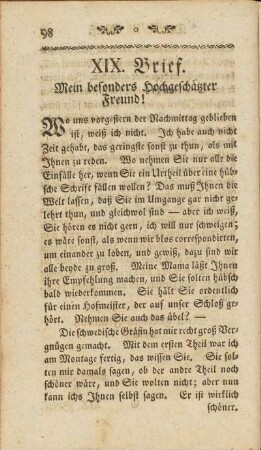 98
XIX. Brief.
Mein besonders Hochgeschätzter
Freund!
Wo uns vorgestern der Nachmittag geblieben
ist, weiß ich nicht. Ich habe auch nicht
Zeit gehabt, das geringste sonst zu thun, als mit
Ihnen zu reden. Wo nehmen Sie nur alle die
Einfälle her, wenn Sie ein Urtheil über eine hüb-
sche Schrift fällen wollen? Das muß Ihnen die
Welt lassen, daß Sie im Umgange gar nicht ge-
lehrt thun, und gleichwol sind — aber ich weiß,
Sie hören es nicht gern, ich will nur schweigen;
es wäre sonst, als wenn wir blos correspondirten,
um einander zu loben, und gewiß, dazu sind wir
alle beyde zu groß. Meine Mama läßt Ihnen
ihre Empfehlung machen, und Sie sollen hübsch
bald wiederkommen. Sie hält Sie ordentlich
für einen Hofmeister, der auf unser Schloß ge-
hört. Nehmen Sie auch das übel? —
Die schwedische Gräfin hat mir recht groß Ver-
gnügen gemacht. Mit dem ersten Theil war ich
am Montage fertig, das wissen Sie. Sie sol-
ten mir damals sagen, ob der andre Theil noch
schöner wäre, und Sie wolten nicht; aber nun
kann ichs Ihnen selbst sagen. Er ist wirklich
schöner.